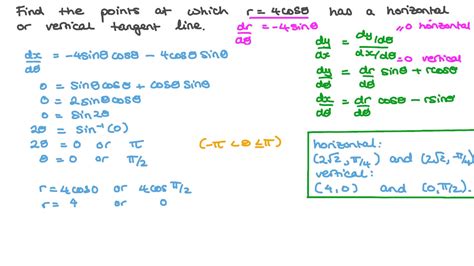 Find the points at which r = 4cosθ has a horizontal
or vertical tangent line.
dr/dθ = -4sinθ
dy/dx = dy/dθ / dx/dθ
=0 horizontal
=0 vertical
dy/dθ = dr/dθ sinθ + rcosθ
dx/dθ = dr/dθ cosθ - rsinθ
dx/dθ = -4sinθcosθ - 4cosθ sinθ
0 = sinθcosθ + cosθsinθ
0 = 2sinθcosθ
0 = sin2θ
2θ = sin⁻¹(0)
2θ = 0 or π
θ = 0 or π/2
(-π < θ ≤ π)
r = 4cos0 or 4cos π/2
r = 4 or 0
horizontal:
(2√2, π/4) and (2√2, -π/4)
vertical:
(4, 0) and (0, π/2).